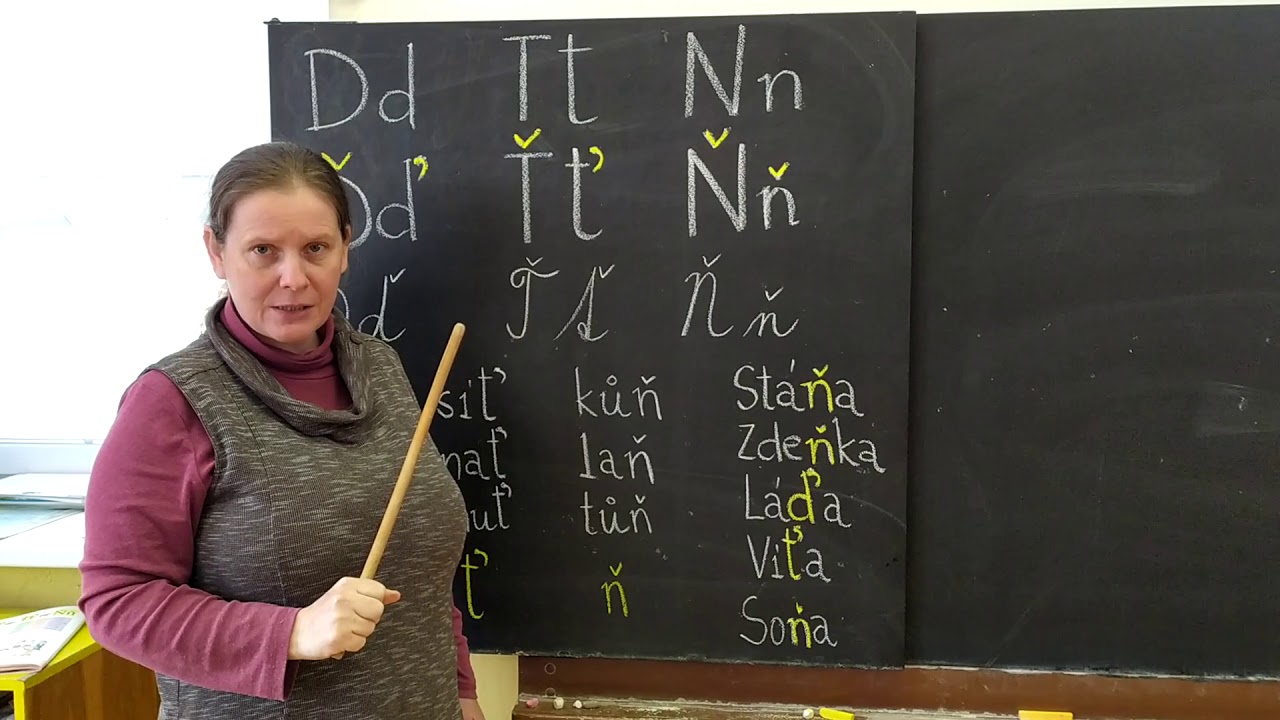 D d T t N n
Ď ď Ť ť Ň ň
ď Ť ť Ň ň
síť kůň Stáňa
laň Zdeňka
tůň Láďa
Víťa
ť ň
Soňa